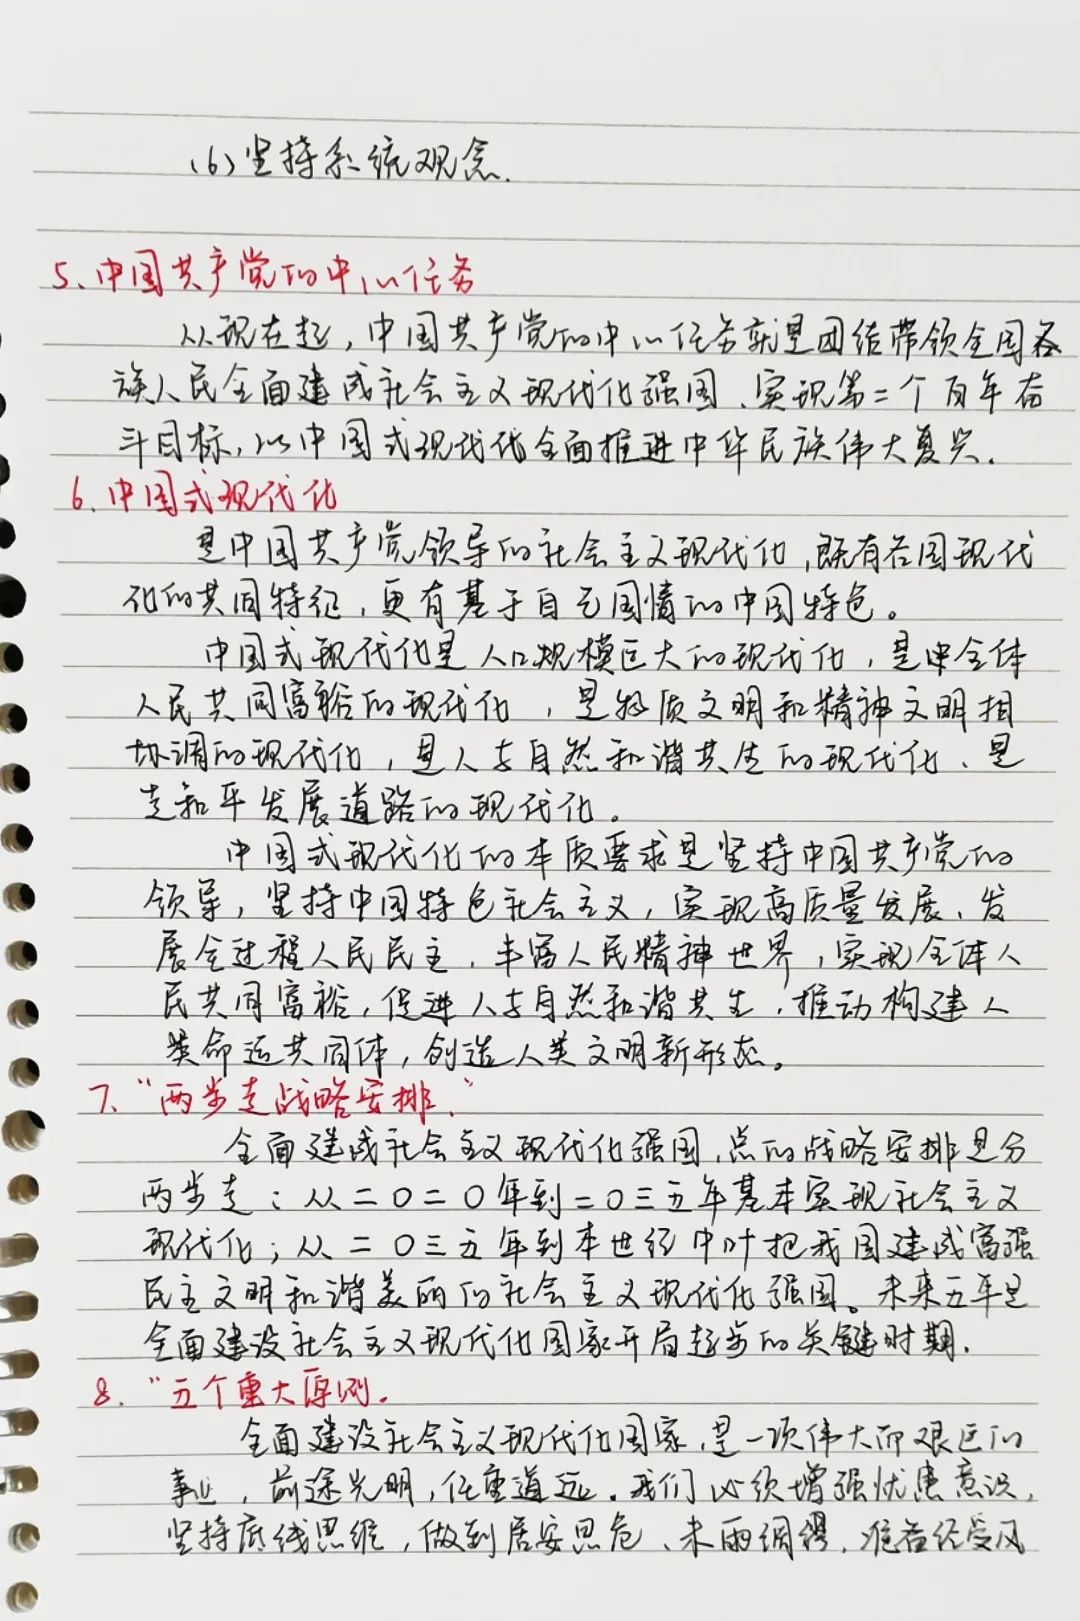 (6)坚持系统观念.
5、中国共产党的中心任务
从现在起,中国共产党的中心任务就是团结带领全国各
族人民全面建成社会主义现代化强国、实现第二个百年奋
斗目标,以中国式现代代全面推进中华民族伟大复兴.
6、中国式现代化
是中国共产党领导的社会主义现代化,既有各国现代
化的共同特征,更有基于自己国情的中国特色。
中国式现代化是人口规模巨大的现代化,是全体
人民共同富裕的现代化,是物质文明和精神文明相
协调的现代化,是人与自然和谐共生的现代化、是
走和平发展道路的现代化。
中国式现代化的本质要求是坚持中国共产党的
领导,坚持中国特色社会主义,实现高质量发展、发
展全过程人民民主、丰富人民精神世界,实现全体人
民共同富裕,促进人与自然和谐共生,推动构建人
类命运共同体,创造人类文明新形态。
7、“两步走战略安排.”
全面建成社会主义现代化强国,总的战略安排是分
两步走:从二〇二〇年到二〇三五年基本实现社会主义
现代化;从二〇三五年到本世纪中叶把我国建成富强
民主文明和谐美丽的社会主义现代化强国。未来五年是
全面建设社会主义现代化国家开局起步的关键时期.
8.“五个重大原则.
全面建设社会主义现代化国家,是一项伟大而艰巨的
事业,前途光明,任重道远.我们必须增强忧患意识,
坚持底线思维,做到居安思危、未雨绸缪,准备经受风